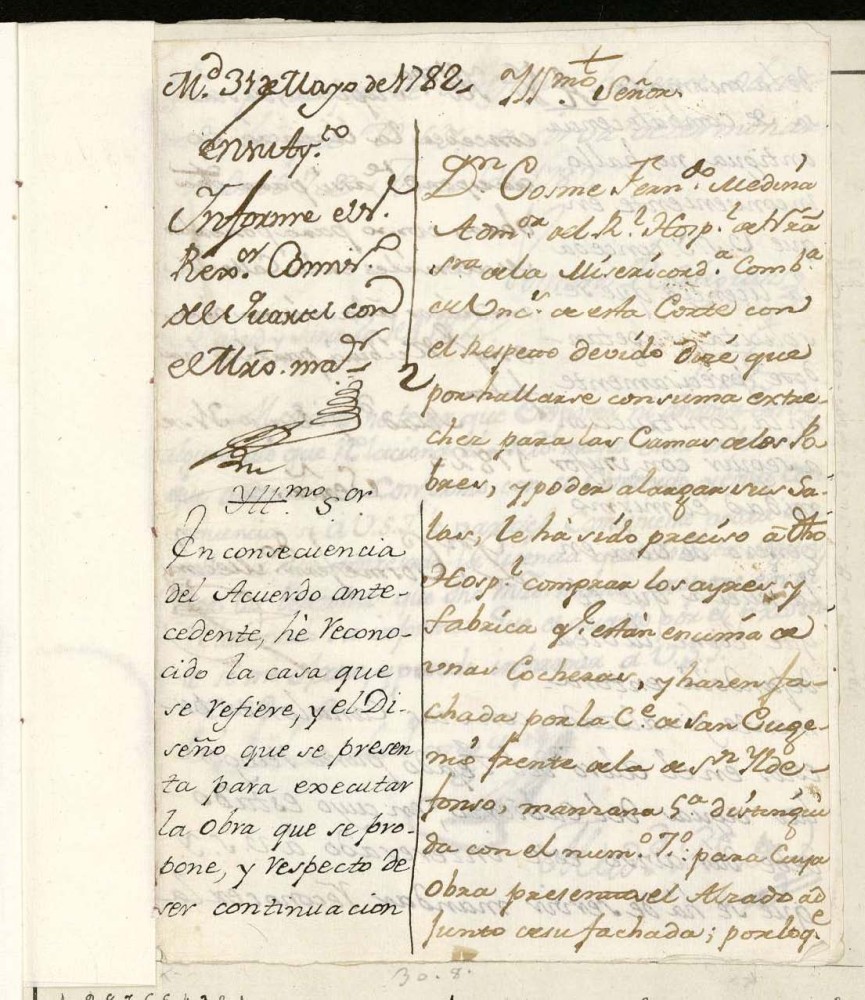 M.d 31 de Mayo de 1782
en su Ay.to
Informe el S.r
Rexor. Comis.o
del Quartel con
el Mro. ma.r
Yll.mo S.or
En consecuencia
del Acuerdo ante-
cedente, hè recono-
cido la casa que
se refiere, y el Di-
seño que se presen
ta para executar
la Obra que se pro-
pone, y respecto de
ser continuacion
Yll.mo Señor
Dn. Cosme Fern.do Medina
Adm.or del R.l Hosp.l de Nrâ
Sra de la Misericord.a Comb.a
de esta Corte con
el Respecto devído dizé que
por hallarse con suma extre-
chez para las Camas de los Po
bres, y poder alargar sus Sa-
las, le hà sído precíso â dho
Hosp.l comprar los ayres y
fabrica q.e están encíma de
unas Cocheras, y hazen fa-
chada por la C.e de San Euge-
nío frente de la de S.n Ylde-
fonso, manzana 5.a distinguí
da con el num.o 7.o: para Cuya
Obra presenta el Alzado ad
junto de su fachada; por lo q.e
30.8.